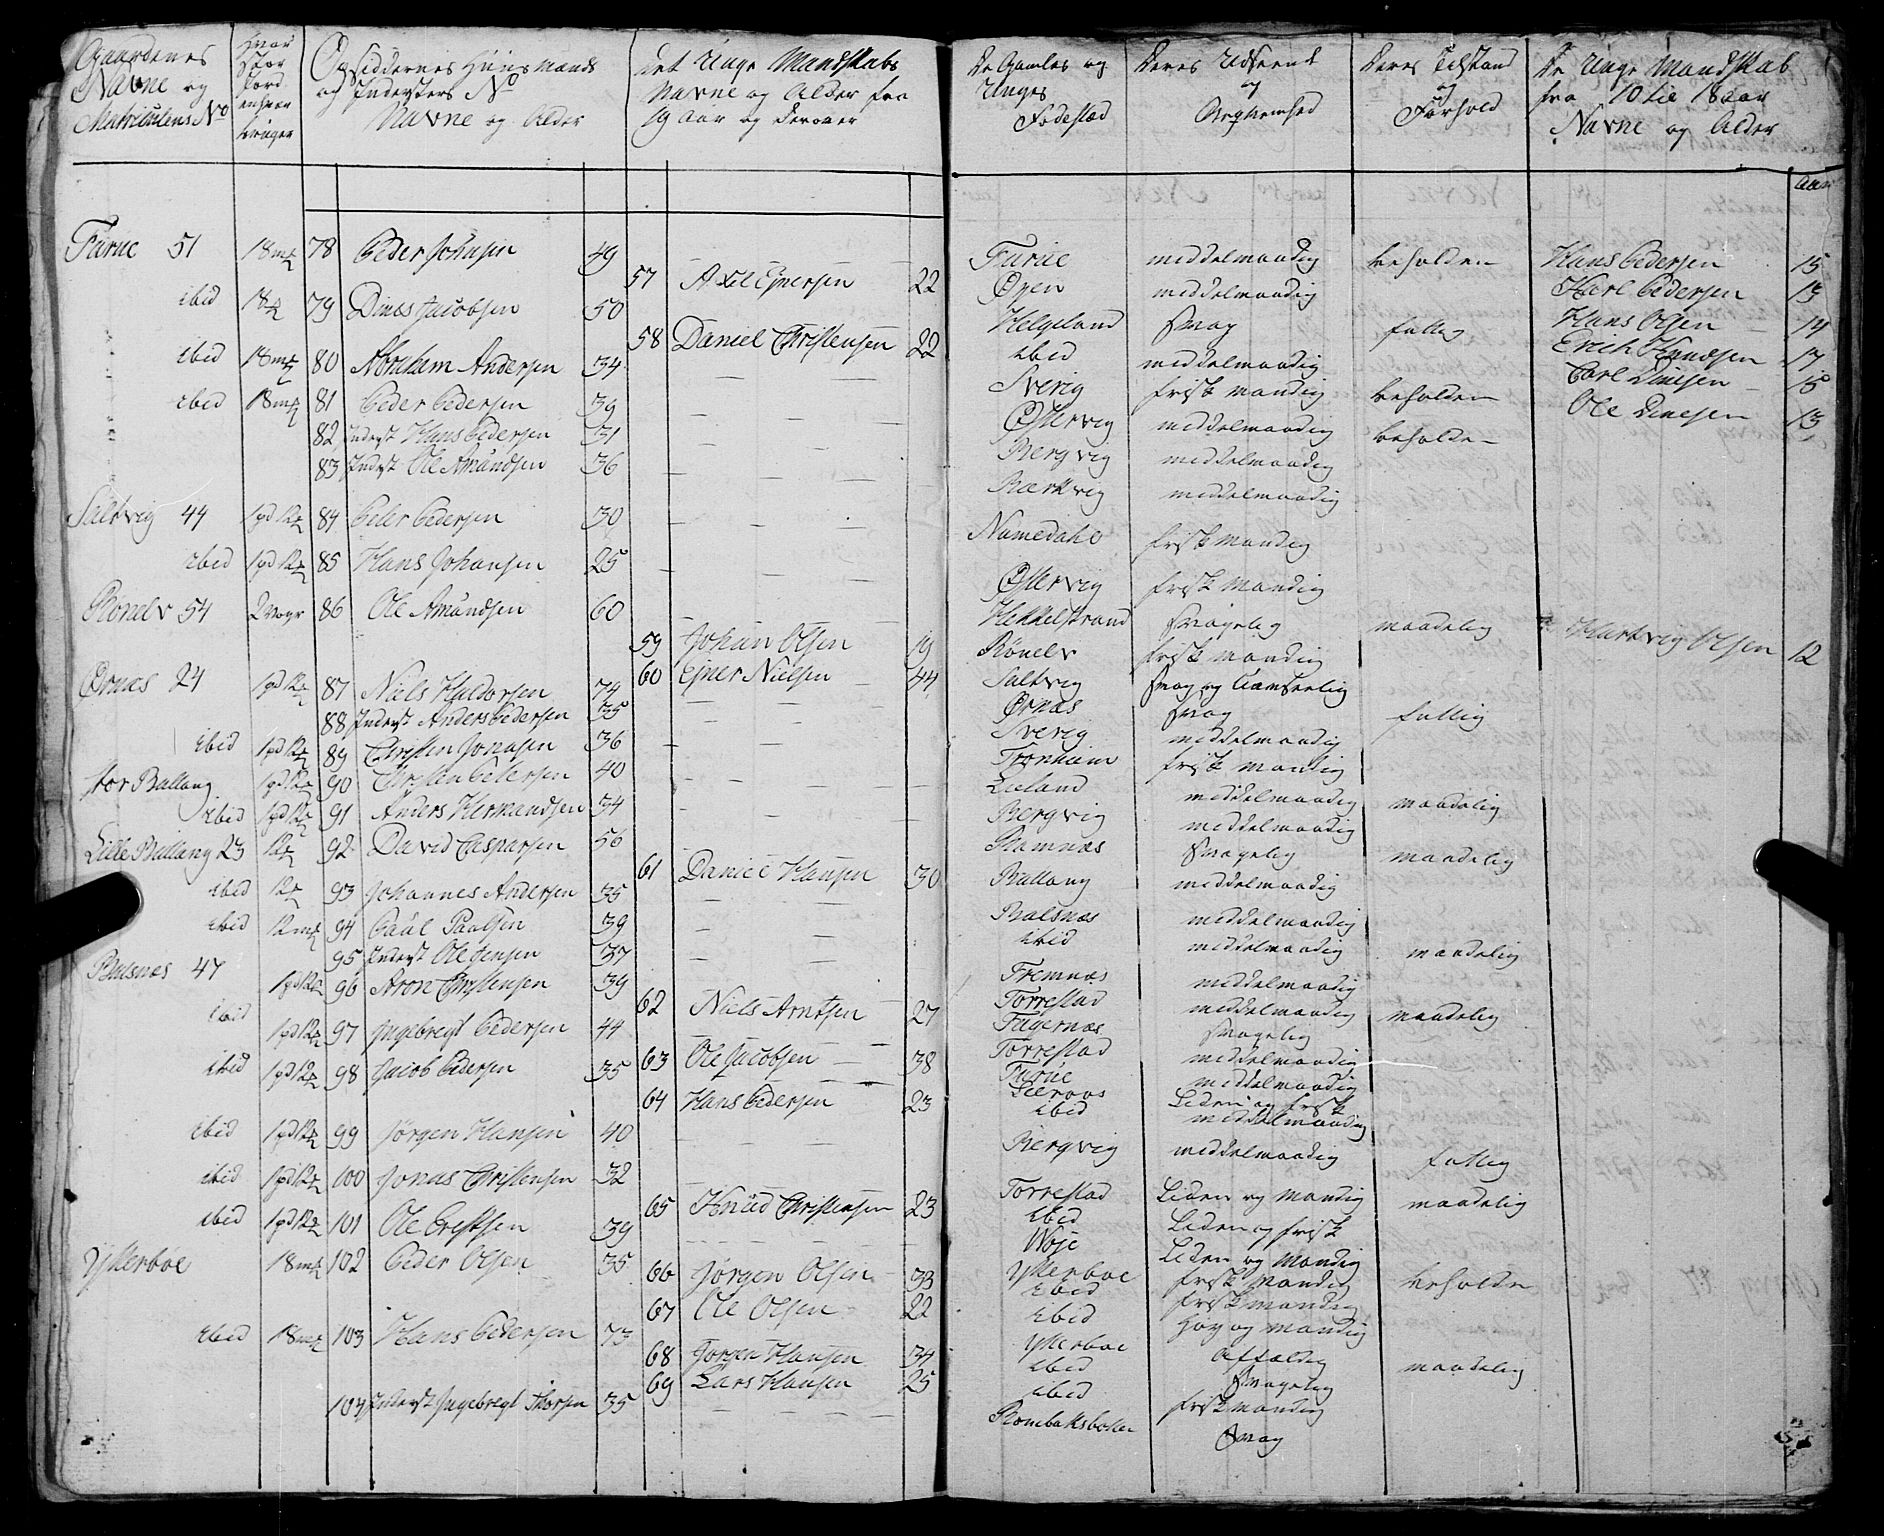 Gaardenes
Navne og
Matriculens No
Hvor
stor
Jord
enhver
bruger
Opsiddernes Huusmænds
og Indersters No
Navne og Alder
Det Unge Mandskabs
Navne og Alder fra
19 Aar og derover
De Gamles og
Unges
Fødestad
Deres Udseende
og
Beqvemhed
Deres Tilstand
og
Forhold
De Unge Mandskab
fra 10 til 18 aar
Navne og Alder
Aar
Furue 51 18 78 Peder Johnsen 49 Furue middelmaadig beholden Hans Pedersen 15
57 Axel Ejnersen 22 Øyen middelmaadig Karl Pedersen 13
ibid 18 79 Dines Jacobsen 50 Helgeland svag fattig Hans Olsen 14
58 Daniel Christensen 22 ibid middelmaadig Erich Knudsen 17
ibid 18 80 Abraham Andersen 34 Sverig frisk mandig beholden Carl Dinesen 15
ibid 18 81 Peder Pedersen 39 Østervig middelmaadig beholden Ole Dinesen 13
82 Inderst Hans Pedersen 31 Bergvig middelmaadig
83 Inderst Ole Amundsen 36 Bærkvig middelmaadig
Saltvig 44 1 pd 12 84 Peter Pedersen 30 Namedahl frisk mandig
ibid 1 pd 12 85 Hans Johansen 25 Østervig frisk mandig
Ronelv 54 2 Vogr 86 Ole Amundsen 60 Hekkelstrand svagelig maadelig Hartvig Olsen 12
59 Johan Olsen 19 Rönelv frisk mandig
60 Ejner Nielsen 44 Saltvig svag og
Ørnæs 24 1 pd 12 87 Niels Haldorsen 74 Ørnæs svag fattig
88 Inderst Anders Pedersen 35 Sverig middelmaadig
ibid 1 pd 12 89 Christen Jonasen 36 Tronhiem frisk mandig
stor Ballang 1 pd 12 90 Christen Pedersen 40 Lieland middelmaadig maadelig
ibid 1 pd 12 91 Anders Hermandsen 34 Bergvig middelmaadig
Lille Ballang 23 12 92 David Casparsen 56 Ramnæs svagelig maadelig
61 Daniel Hansen 30 Ballang middelmaadig
ibid 12 93 Johannes Andersen 35 Balsnæs middelmaadig
ibid 12 94 Paul Paulsen 39 ibid middelmaadig maadelig
95 Inderst Ole Jensen 37 Fremnæs middelmaadig
Balsnæs 47 1 pd 12 96 Aron Christensen 39 Torrestad middelmaadig maadelig
62 Niels Arntsen 27 Fagernæs svagelig
ibid 1 pd 12 97 Ingebregt Pedersen 44 Torrestad middelmaadig
63 Ole Jacobsen 38 Furue middelmaadig
ibid 1 pd 12 98 Jacob Pedersen 35 Leeraas Liden og frisk
64 Hans Pedersen 23 ibid middelmaadig
ibid 1 pd 12 99 Jørgen Hansen 40 Bergvig middelmaadig fattig
ibid 1 pd 12 100 Jonas Christensen 32 Torrestad Liden og mandig maadelig
65 Knud Christensen 23 ibid Liden og frisk
ibid 1 pd 12 101 Ole Erichsen 39 Woje Liden og mandig
Ytterboe 18 102 Peder Olsen 35 Ytterboe frisk mandig beholden
66 Jørgen Olsen 33 ibid frisk mandig
67 Ole Olsen 22 ibid høy og mandig
ibid 18 103 Hans Pedersen 73 Ytterboe affældig maadelig
68 Jørgen Hansen 34 ibid svagelig
69 Lars Hansen 25 ibid frisk mandig
104 Inderst Ingebregt Thorsen 35 Rombaksbotten svag